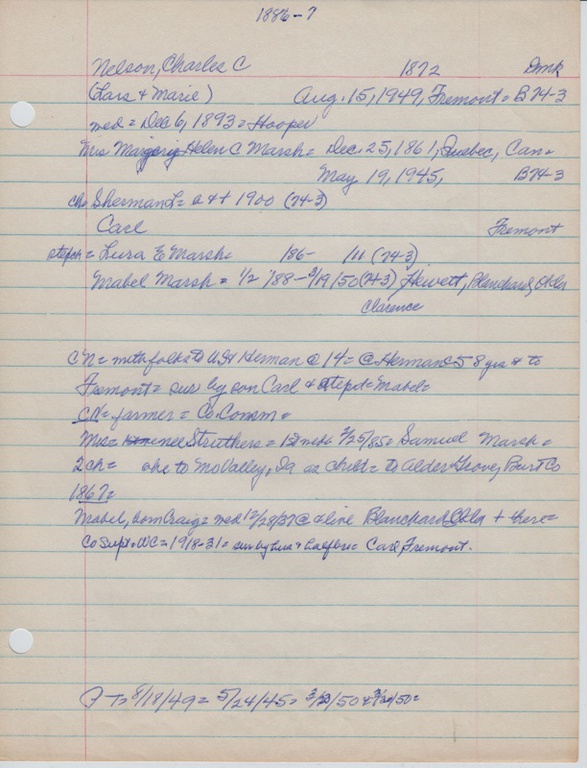 1886-7
Nelson, Charles C 1872 Dmk
(Lars & Marie) Aug. 15, 1949, Fremont= B74-3
med= Dec 6, 1893= Hooper
Mrs Margerig Helen C Marsh= Dec. 25, 1861, Quebec, Can=
May 19, 1945, B74-3
ch= Sherman L= a & t 1900 (74-3)
Carl Fremont
stepch= Lura E Marsh= 186- (74-3)
Mabel Marsh= 1/2 '88- 3/19/50 (74-3) Hewett, Blanchard, Okla
Clarence
CN= with folks to Herman @ 14= @ Herman 58 yrs & to
Fremont= sur by son Carl & stepd= Mabel=
CN= farmer= Co. Comm=
Mrs= nee Struthers= 1st med= 2/25/85= Samuel Marsh=
2 ch= she to MoValley, Ia as child= to Alder Grove, Burt Co
1867=
Mabel, born Craig= med 12/28/37 @ & live Blanchard Okla & there=
Co Supt= WC= 1918-31= sur by hus & halfbro= Carl Fremont.
T= 8/18/49= 5/24/45= 3/20/50 &